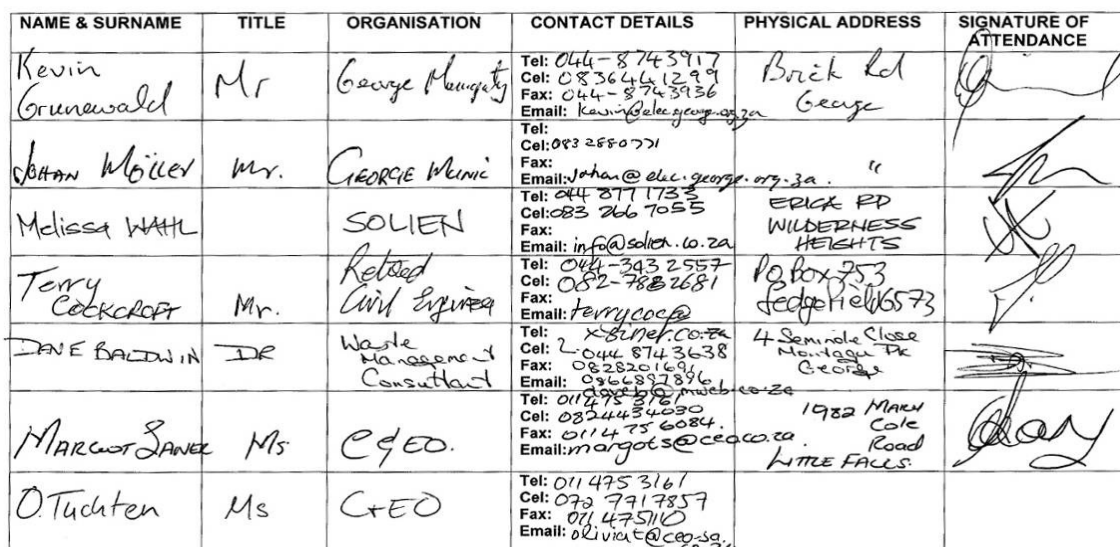 NAME & SURNAME TITLE ORGANISATION CONTACT DETAILS PHYSICAL ADDRESS SIGNATURE OF ATTENDANCE
Kevin Grunewald
Mr
George
Tel: 044-8743917
Cel: 0836441299
Fax: 044-8743936
Email: kevin@elec.george.org.za
Brick Rd
George
JOHAN MÖLLER
Mr.
GEORGE MUNIC
Tel:
Cel: 083 2880771
Fax:
Email: Johan@elec.george.org.za.
"
Melissa WAHL
SOLIEN
Tel: 044 877 1733
Cel: 083 266 7055
Fax:
Email: info@solien.co.za
ERICA RD
WILDERNESS
HEIGHTS
Terry
COCKCROFT
Mr.
Retired
Civil Engineer
Tel: 044-343 2557
Cel: 082-7882681
Fax:
Email: terrycoc@
xsinet.co.za
PO Box 753
Sedgefield 6573
DAVE BALDWIN
DR
Waste
Management
Consultant
Tel:
Cel: 044 874 3638
Fax: 0828201691
Email: 0866897896
daveb@mweb.co.za
4 Seminole Close
Montagu Pk
George
MARGOT
Ms
C&EO.
Tel: 011 475 3161
Cel: 0824434030
Fax: 011 475 6084.
Email: margots@ceo.co.za.
1982 MARY
Cole
Road
LITTLE FALLS.
O. Tuchten
Ms
C+EO
Tel: 011 475 3161
Cel: 072 7717857
Fax: 011 475110
Email: oliviat@ceo-sa.
co.za